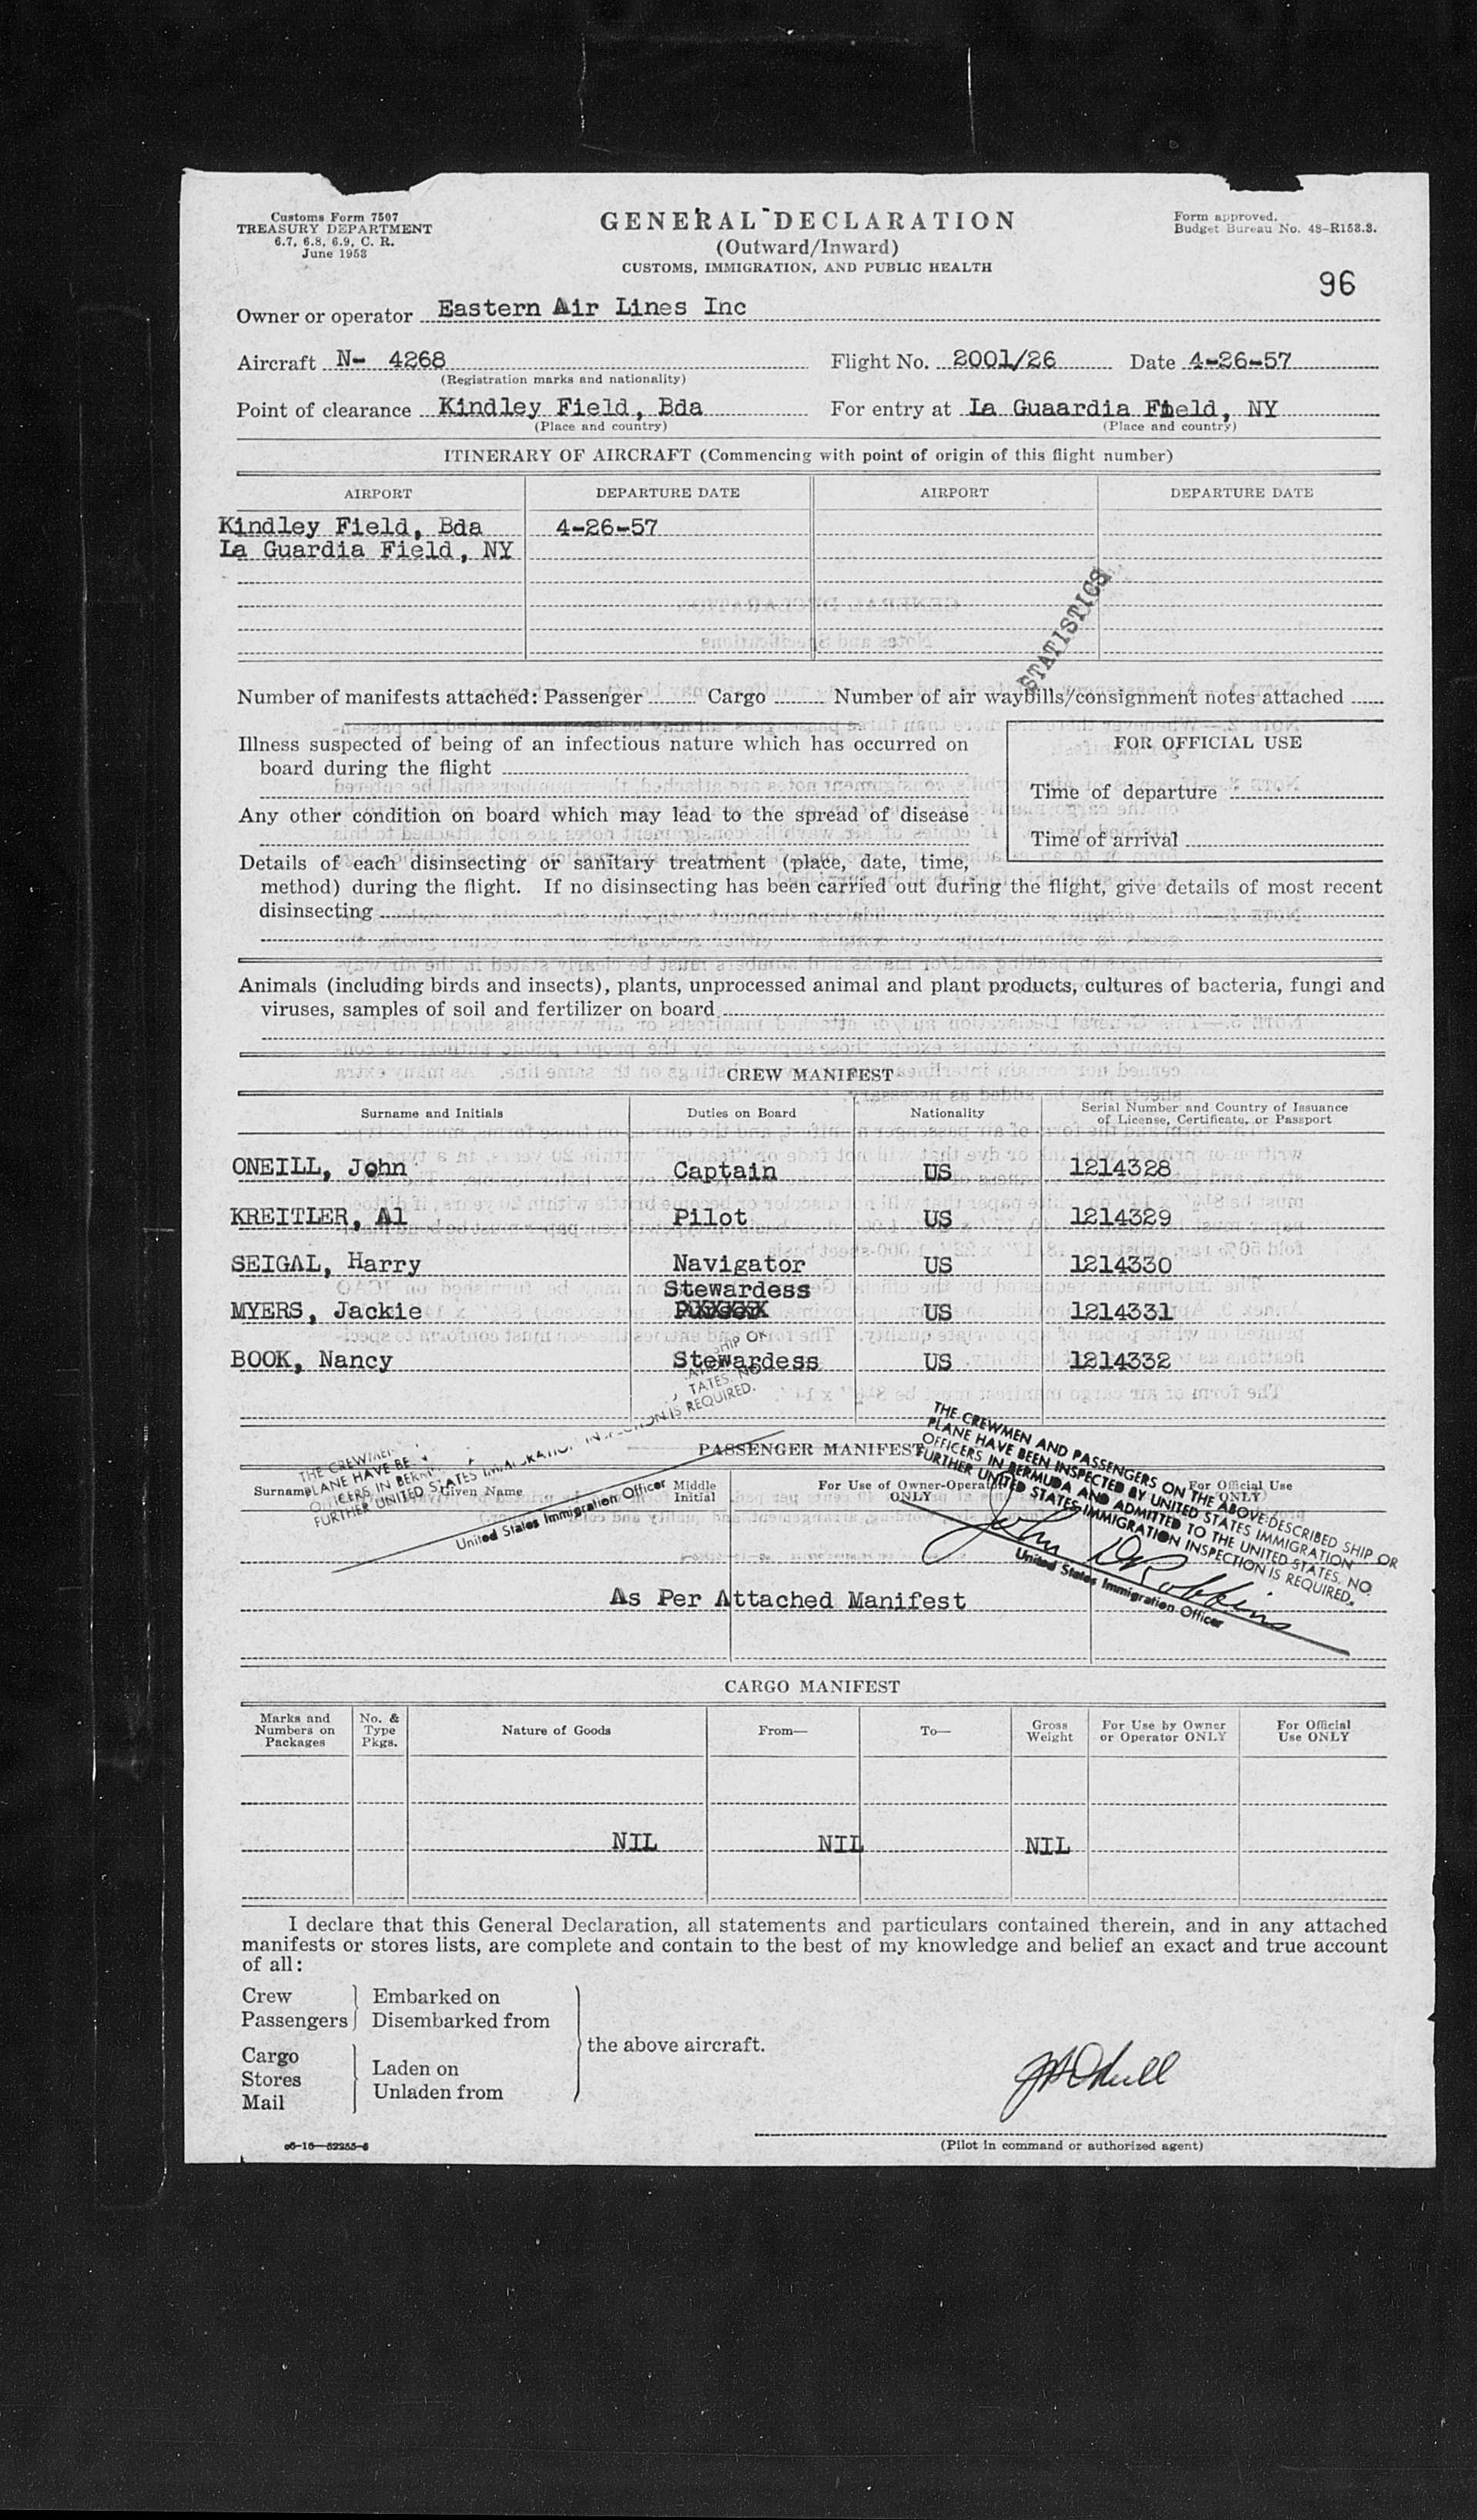 Customs Form 7507
TREASURY DEPARTMENT
6.7, 6.8, 6.9, C. R.
June 1953
GENERAL DECLARATION
(Outward/Inward)
CUSTOMS, IMMIGRATION, AND PUBLIC HEALTH
Form approved.
Budget Bureau No. 48-R153.3.
96
Owner or operator Eastern Air Lines Inc
Aircraft N- 4268 Flight No. 2001/26 Date 4-26-57
(Registration marks and nationality)
Point of clearance Kindley Field, Bda For entry at La Guaardia Field, NY
(Place and country) (Place and country)
ITINERARY OF AIRCRAFT (Commencing with point of origin of this flight number)
AIRPORT DEPARTURE DATE AIRPORT DEPARTURE DATE
Kindley Field, Bda 4-26-57
La Guardia Field, NY
STATISTICS
Number of manifests attached: Passenger Cargo Number of air waybills/consignment notes attached
Illness suspected of being of an infectious nature which has occurred on
board during the flight
Any other condition on board which may lead to the spread of disease
FOR OFFICIAL USE
Time of departure
Time of arrival
Details of each disinsecting or sanitary treatment (place, date, time,
method) during the flight. If no disinsecting has been carried out during the flight, give details of most recent
disinsecting
Animals (including birds and insects), plants, unprocessed animal and plant products, cultures of bacteria, fungi and
viruses, samples of soil and fertilizer on board
CREW MANIFEST
Surname and Initials Duties on Board Nationality Serial Number and Country of Issuance
of License, Certificate, or Passport
ONEILL, John Captain US 1214328
KREITLER, Al Pilot US 1214329
SEIGAL, Harry Navigator US 1214330
Stewardess
MYERS, Jackie US 1214331
BOOK, Nancy Stewardess US 1214332
PASSENGER MANIFEST
Surname Given Name Middle
Initial For Use of Owner-Operator
ONLY For Official Use
ONLY
FURTHER UNITED STATES IMMIGRATION INSPECTION IS REQUIRED.
United States Immigration Officer
THE CREWMEN AND PASSENGERS ON THE ABOVE-DESCRIBED SHIP OR
PLANE HAVE BEEN INSPECTED BY UNITED STATES IMMIGRATION
OFFICERS IN BERMUDA AND ADMITTED TO THE UNITED STATES. NO
FURTHER UNITED STATES IMMIGRATION INSPECTION IS REQUIRED.
John D Robbins
United States Immigration Officer
As Per Attached Manifest
CARGO MANIFEST
Marks and
Numbers on
Packages
No. &
Type
Pkgs.
Nature of Goods From— To— Gross
Weight
For Use by Owner
or Operator ONLY
For Official
Use ONLY
NIL NIL NIL
I declare that this General Declaration, all statements and particulars contained therein, and in any attached
manifests or stores lists, are complete and contain to the best of my knowledge and belief an exact and true account
of all:
Crew Embarked on
Passengers Disembarked from
the above aircraft.
Cargo
Stores Laden on
Mail Unladen from
(Pilot in command or authorized agent)